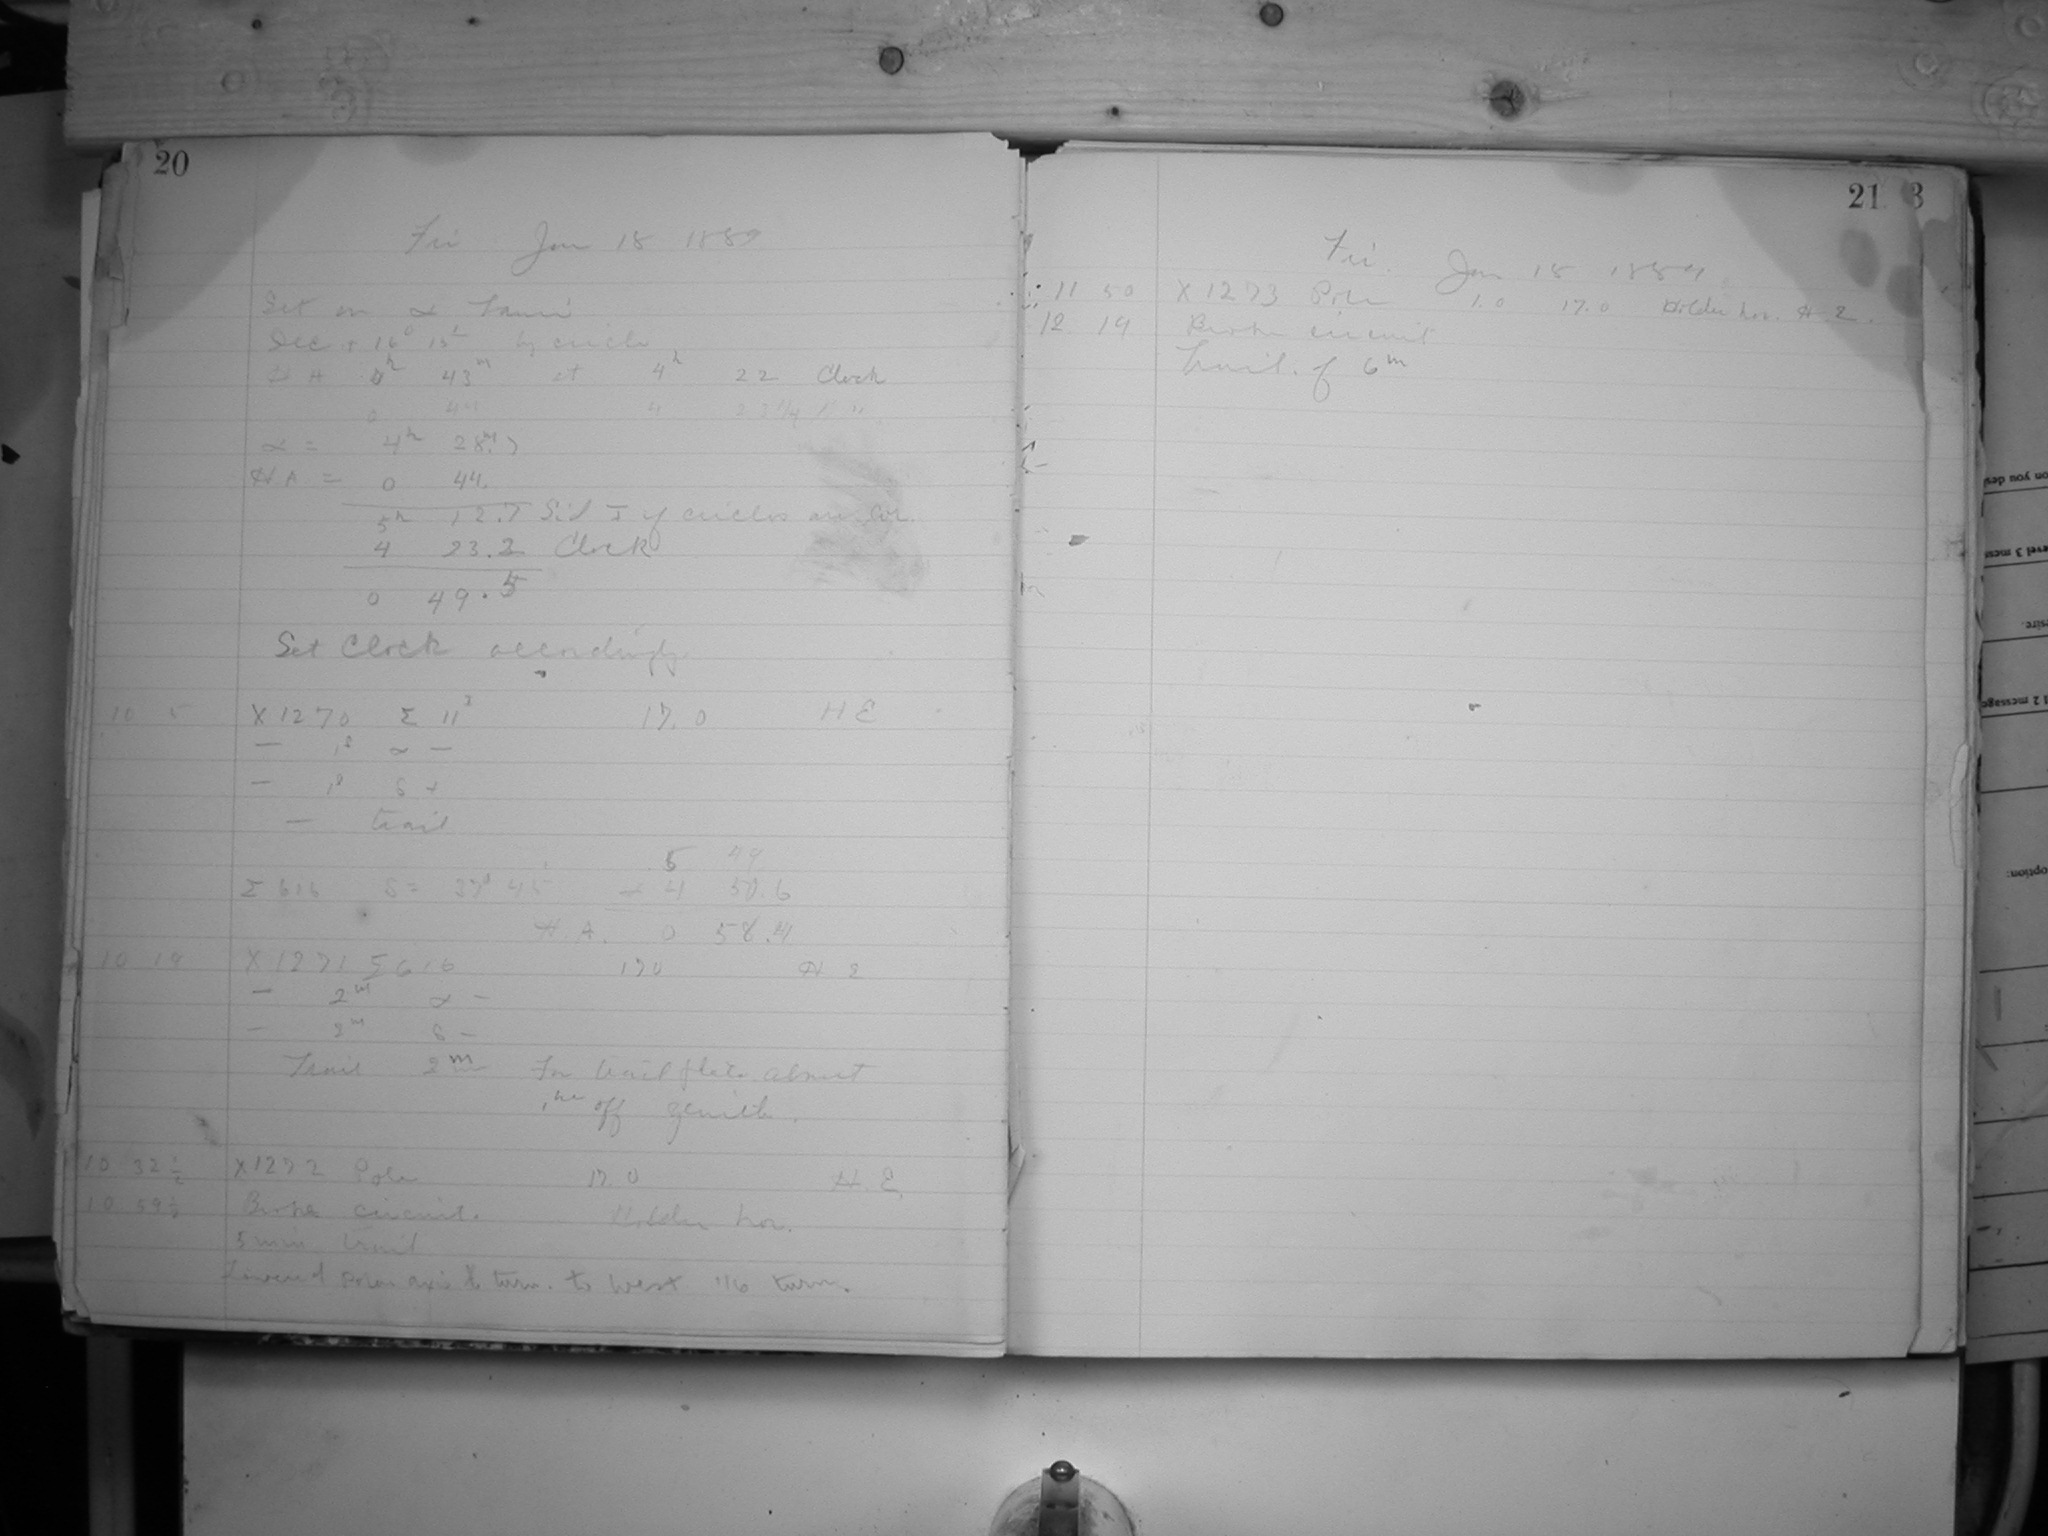 20
Fri Jan 18 1889
Set on α Tauri
Dec + 16° 15' by circle
H A 0h 43m at 4h 22 Clock
0 44 4 23 1/4 " "
α = 4h 28m.7
H A = 0 44
5h 12.7 Sid T if circles are cor.
4 23.2 Clock
0 49.5
Set Clock accordingly.
10 5 X1270 Σ 11 17.0 H E
— α —
— δ +
— trail
5 49
Σ 616 δ = 37° 45' α 4 50.6
H. A. 0 58.4
10 19 X1271 Σ 616 17.0 H E
— 2m α —
— 2m δ —
Trail 2m For trail plate about
1h off zenith.
10 32 1/2 X1272 Pole 17.0 H. E.
10 59 1/2 Broke circuit. Holder hor.
5 mm trail
Lowered polar axis turn. to West 1/16 turn.
21 3
Fri. Jan 18 1889
11 50 X1273 Pole 1.0 17.0 Holder hor. H E.
12 19 Broke circuit
trail. of 6m